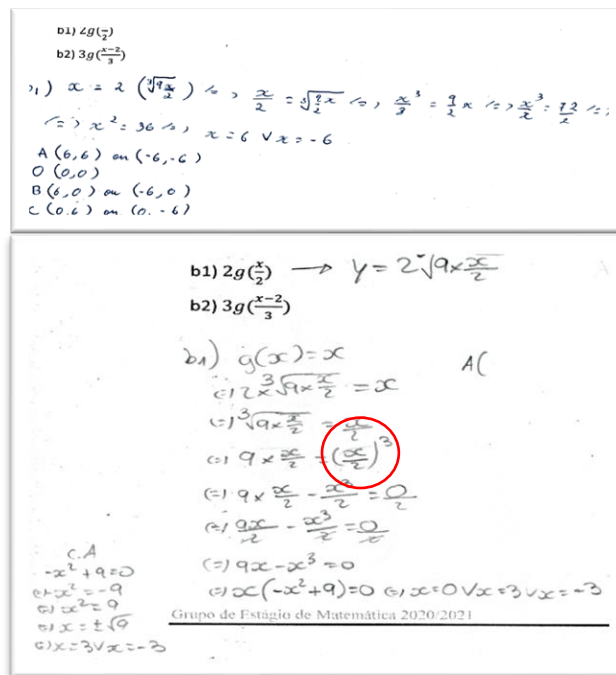 b1) 2g(x/2)
b2) 3g((x-2)/3)
b1) x = 2 (∛(9x/2)) <=> x/2 = ∛(9/2 x) <=> x³/8 = 9/2 x <=> x³/x = 72/2 <=>
<=> x² = 36 <=> x = 6 ∨ x = -6
A (6,6) ou (-6,-6)
O (0,0)
B (6,0) ou (-6,0)
C (0,6) ou (0,-6)
b1) 2g(x/2) → y = 2∛(9×x/2)
b2) 3g((x-2)/3)
b1) g(x) = x
A(
<=> 2×∛(9×x/2) = x
<=> ∛(9×x/2) = x/2
<=> 9×x/2 = (x/2)³
<=> 9×x/2 - x³/2 = 0/2
<=> 9x/2 - x³/2 = 0/2
<=> 9x - x³ = 0
<=> x(-x²+9) = 0 <=> x=0 ∨ x=3 ∨ x=-3
C.A
-x²+9=0
<=> -x²=-9
<=> x²=9
<=> x=±√9
<=> x=3 ∨ x=-3
Grupo de Estágio de Matemática 2020/2021